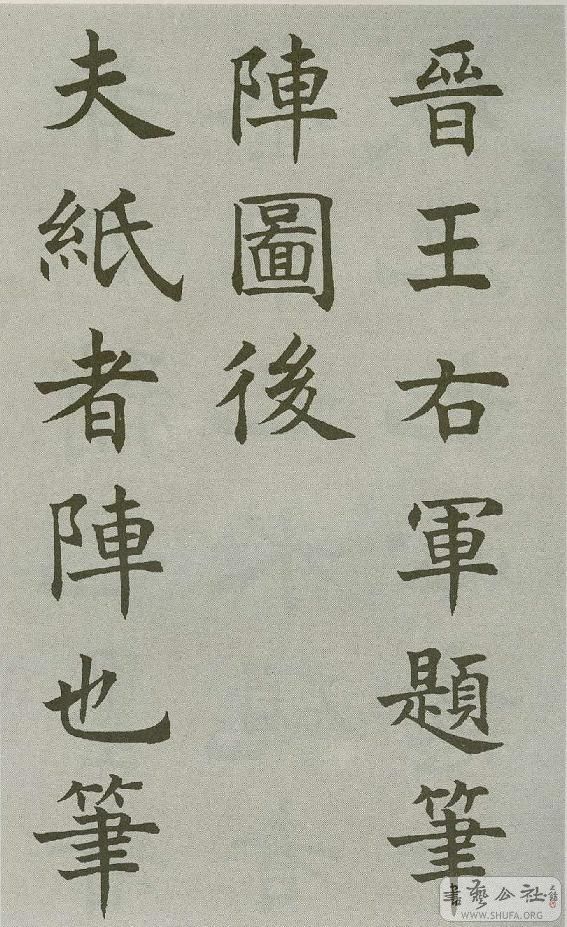 晉王右軍題筆
陣圖後
夫紙者陣也筆
書藝公社
WWW.SHUFA.ORG